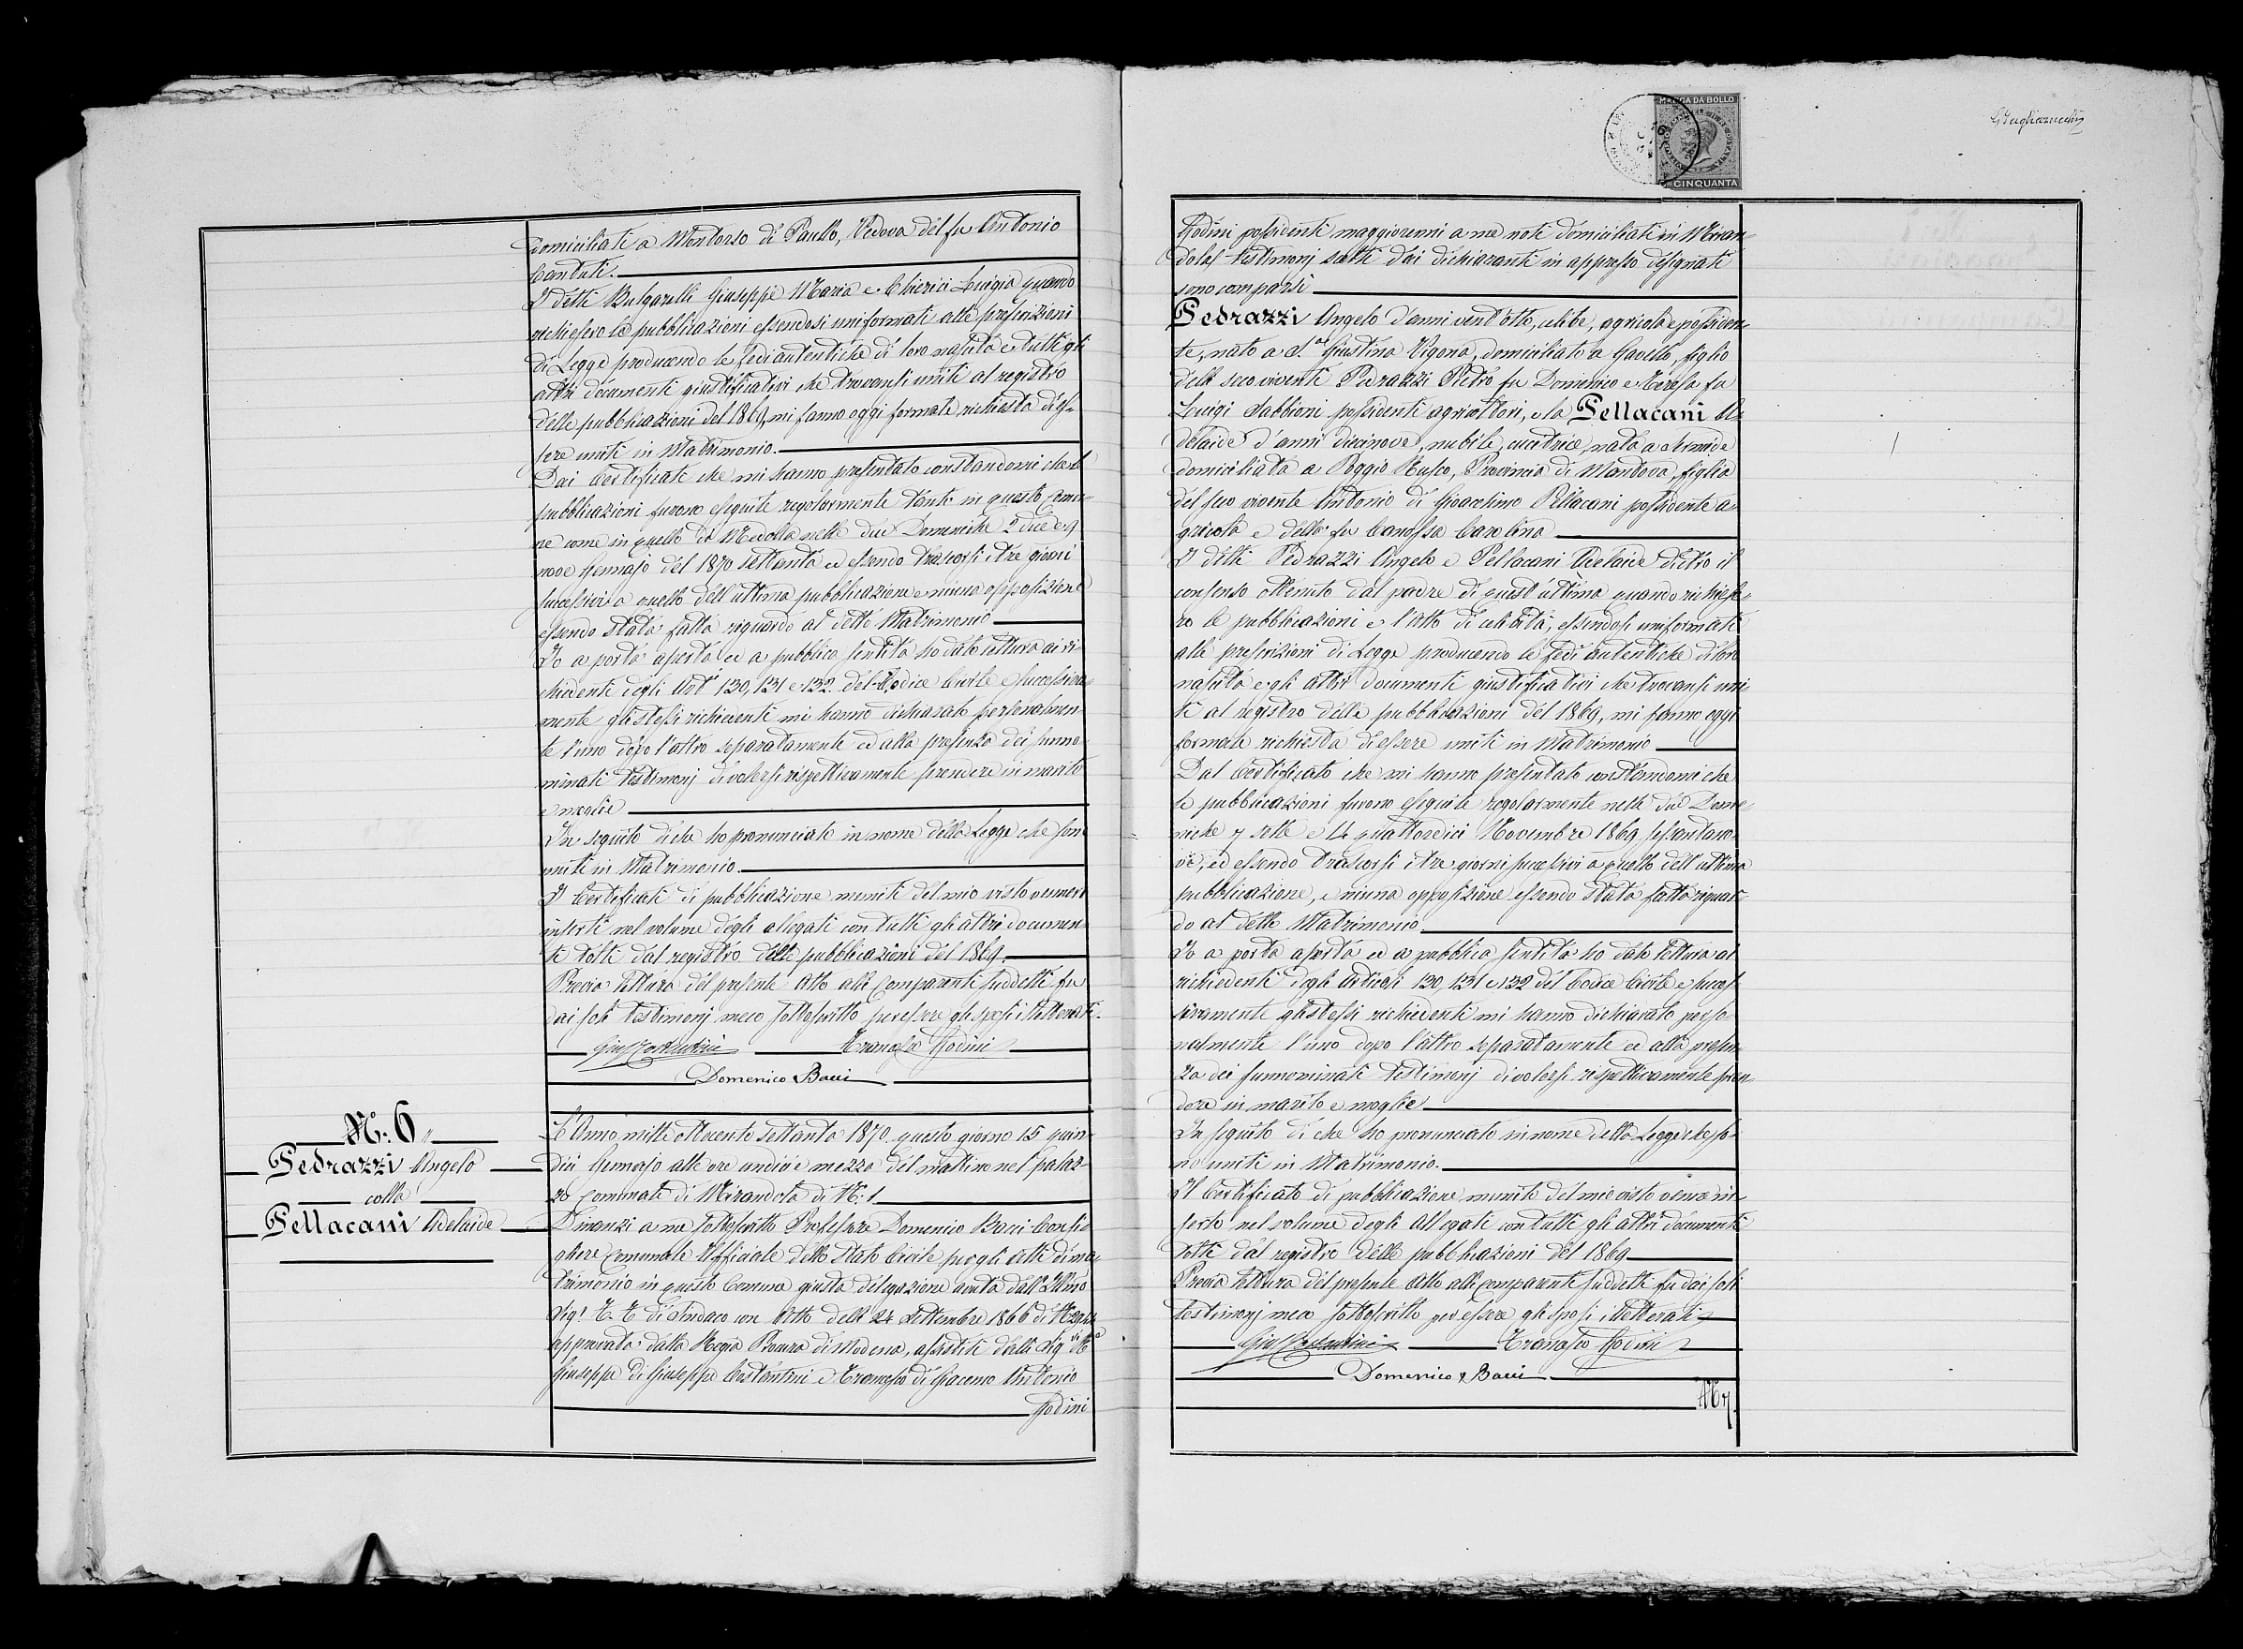 domiciliati a Montorso di Paullo, Vedova del fu Antonio
Canduti.
I detti Bulgarelli Giuseppe Maria e Chierici Luigia quando
richiesero le pubblicazioni essendosi uniformati alle prescrizioni
di Legge producendo le fedi autentiche di loro nascita e tutti gli
altri documenti giustificativi che trovansi uniti al registro
delle pubblicazioni del 1869, mi fanno oggi formale richiesta d'es-
sere uniti in Matrimonio.
Dai Certificati che mi hanno presentato constandomi che le
pubblicazioni furono eseguite regolarmente tanto in questo Comu-
ne come in quello di Medolla nelle due Domeniche 2 due e 9
nove Gennajo del 1870 settanta ed essendo trascorsi i tre giorni
successivi a quello dell'ultima pubblicazione e niuna opposizione
essendo stata fatta riguardo al detto Matrimonio
Io a porta aperta ed a pubblica sentita ho dato lettura ai ri-
chiedenti degli Art.i 130, 131 e 132 del Codice Civile e successiva-
mente gli stessi richiedenti mi hanno dichiarato personalmen-
te l'uno dopo l'altro separatamente ed alla presenza dei sunno-
minati testimonj di volersi rispettivamente prendere in marito
e moglie
In seguito di che ho pronunciato in nome della Legge che sono
uniti in Matrimonio.
I Certificati di pubblicazione muniti del mio visto vennero
inserti nel volume degli allegati con tutti gli altri documen-
ti tolti dal registro delle pubblicazioni del 1869.
Previa lettura del presente Atto alli Comparenti suddetti fu
dai soli testimonj meco sottoscritto per essere gli sposi illetterati.
Gius Costantini Tranasco Rodini
Domenico Bacci
N.° 6
Pedrazzi Angelo
colla
Pellacani Adelaide
L'Anno mille ottocento settanta 1870 questo giorno 15 quin-
dici Gennajo alle ore undici e mezza del mattino nel palaz-
zo Comunale di Mirandola di N.° 1
Dinanzi a me sottoscritto Professore Domenico Bacci Consi-
gliere Comunale Uffiziale dello Stato Civile per gli Atti di ma-
trimonio in questo Comune giusta delegazione avuta dall'Ill.mo
Sig.r F. F. di Sindaco con Atto delli 24 Settembre 1866 di N.
approvata dalla Regia Procura di Modena, assistiti dalli Sig.ri
Giuseppe di Giuseppe Costantini e Tranasco di Giacomo Antonio
Rodini
MARCA DA BOLLO
CINQUANTA
Rodini possidenti maggiorenni a me noti domiciliati in Miran-
dola testimonj scelti dai dichiaranti in appresso designati
sono comparsi
Pedrazzi Angelo d'anni vent'otto, celibe, agricola e possiden-
te, nato a S.a Giustina Vigona, domiciliato a Gavello, figlio
delli seco viventi Pedrazzi Pietro fu Domenico e Teresa fu
Luigi Sabbioni possidenti agricoltori, e la Pellacani A-
delaide d'anni diecinove, nubile, cucitrice, nata a
domiciliata a Poggio Rusco, Provincia di Mantova, figlia
del seco vivente Antonio di Gioacchino Pellacani possidente a-
gricola e della fu Canossa Carolina
I detti Pedrazzi Angelo e Pellacani Adelaide dietro il
consenso ottenuto dal padre di quest'ultima quando richiese-
ro le pubblicazioni e l'atto di celibità, essendosi uniformati
alle prescrizioni di Legge producendo le fedi autentiche di loro
nascita e gli altri documenti giustificativi che trovansi uni-
ti al registro delle pubblicazioni del 1869, mi fanno oggi
formale richiesta di essere uniti in Matrimonio
Dal Certificato che mi hanno presentato constandomi che
le pubblicazioni furono eseguite regolarmente nelle due Dome-
niche 7 sette e 14 quattordici Novembre 1869 sessantano-
ve, ed essendo trascorsi i tre giorni successivi a quello dell'ultima
pubblicazione, e niuna opposizione essendo stata fatta riguar-
do al detto Matrimonio
Io a porta aperta ed a pubblica sentita ho dato lettura ai
richiedenti degli Articoli 130, 131 e 132 del Codice Civile e succes-
sivamente gli stessi richiedenti mi hanno dichiarato perso-
nalmente l'uno dopo l'altro separatamente ed alla presen-
za dei sunnominati testimonj di volersi rispettivamente pren-
dere in marito e moglie
In seguito di che ho pronunciato in nome della Legge che so-
no uniti in Matrimonio.
Il Certificato di pubblicazione munito del mio visto venne in-
serto nel volume degli Allegati con tutti gli altri documenti
tolti dal registro delle pubblicazioni del 1869
Previa lettura del presente Atto alli comparenti suddetti fu dai soli
testimonj meco sottoscritto per essere gli sposi illetterati
Gius Costantini Tranasco Rodini
Domenico Bacci
N.° 7.